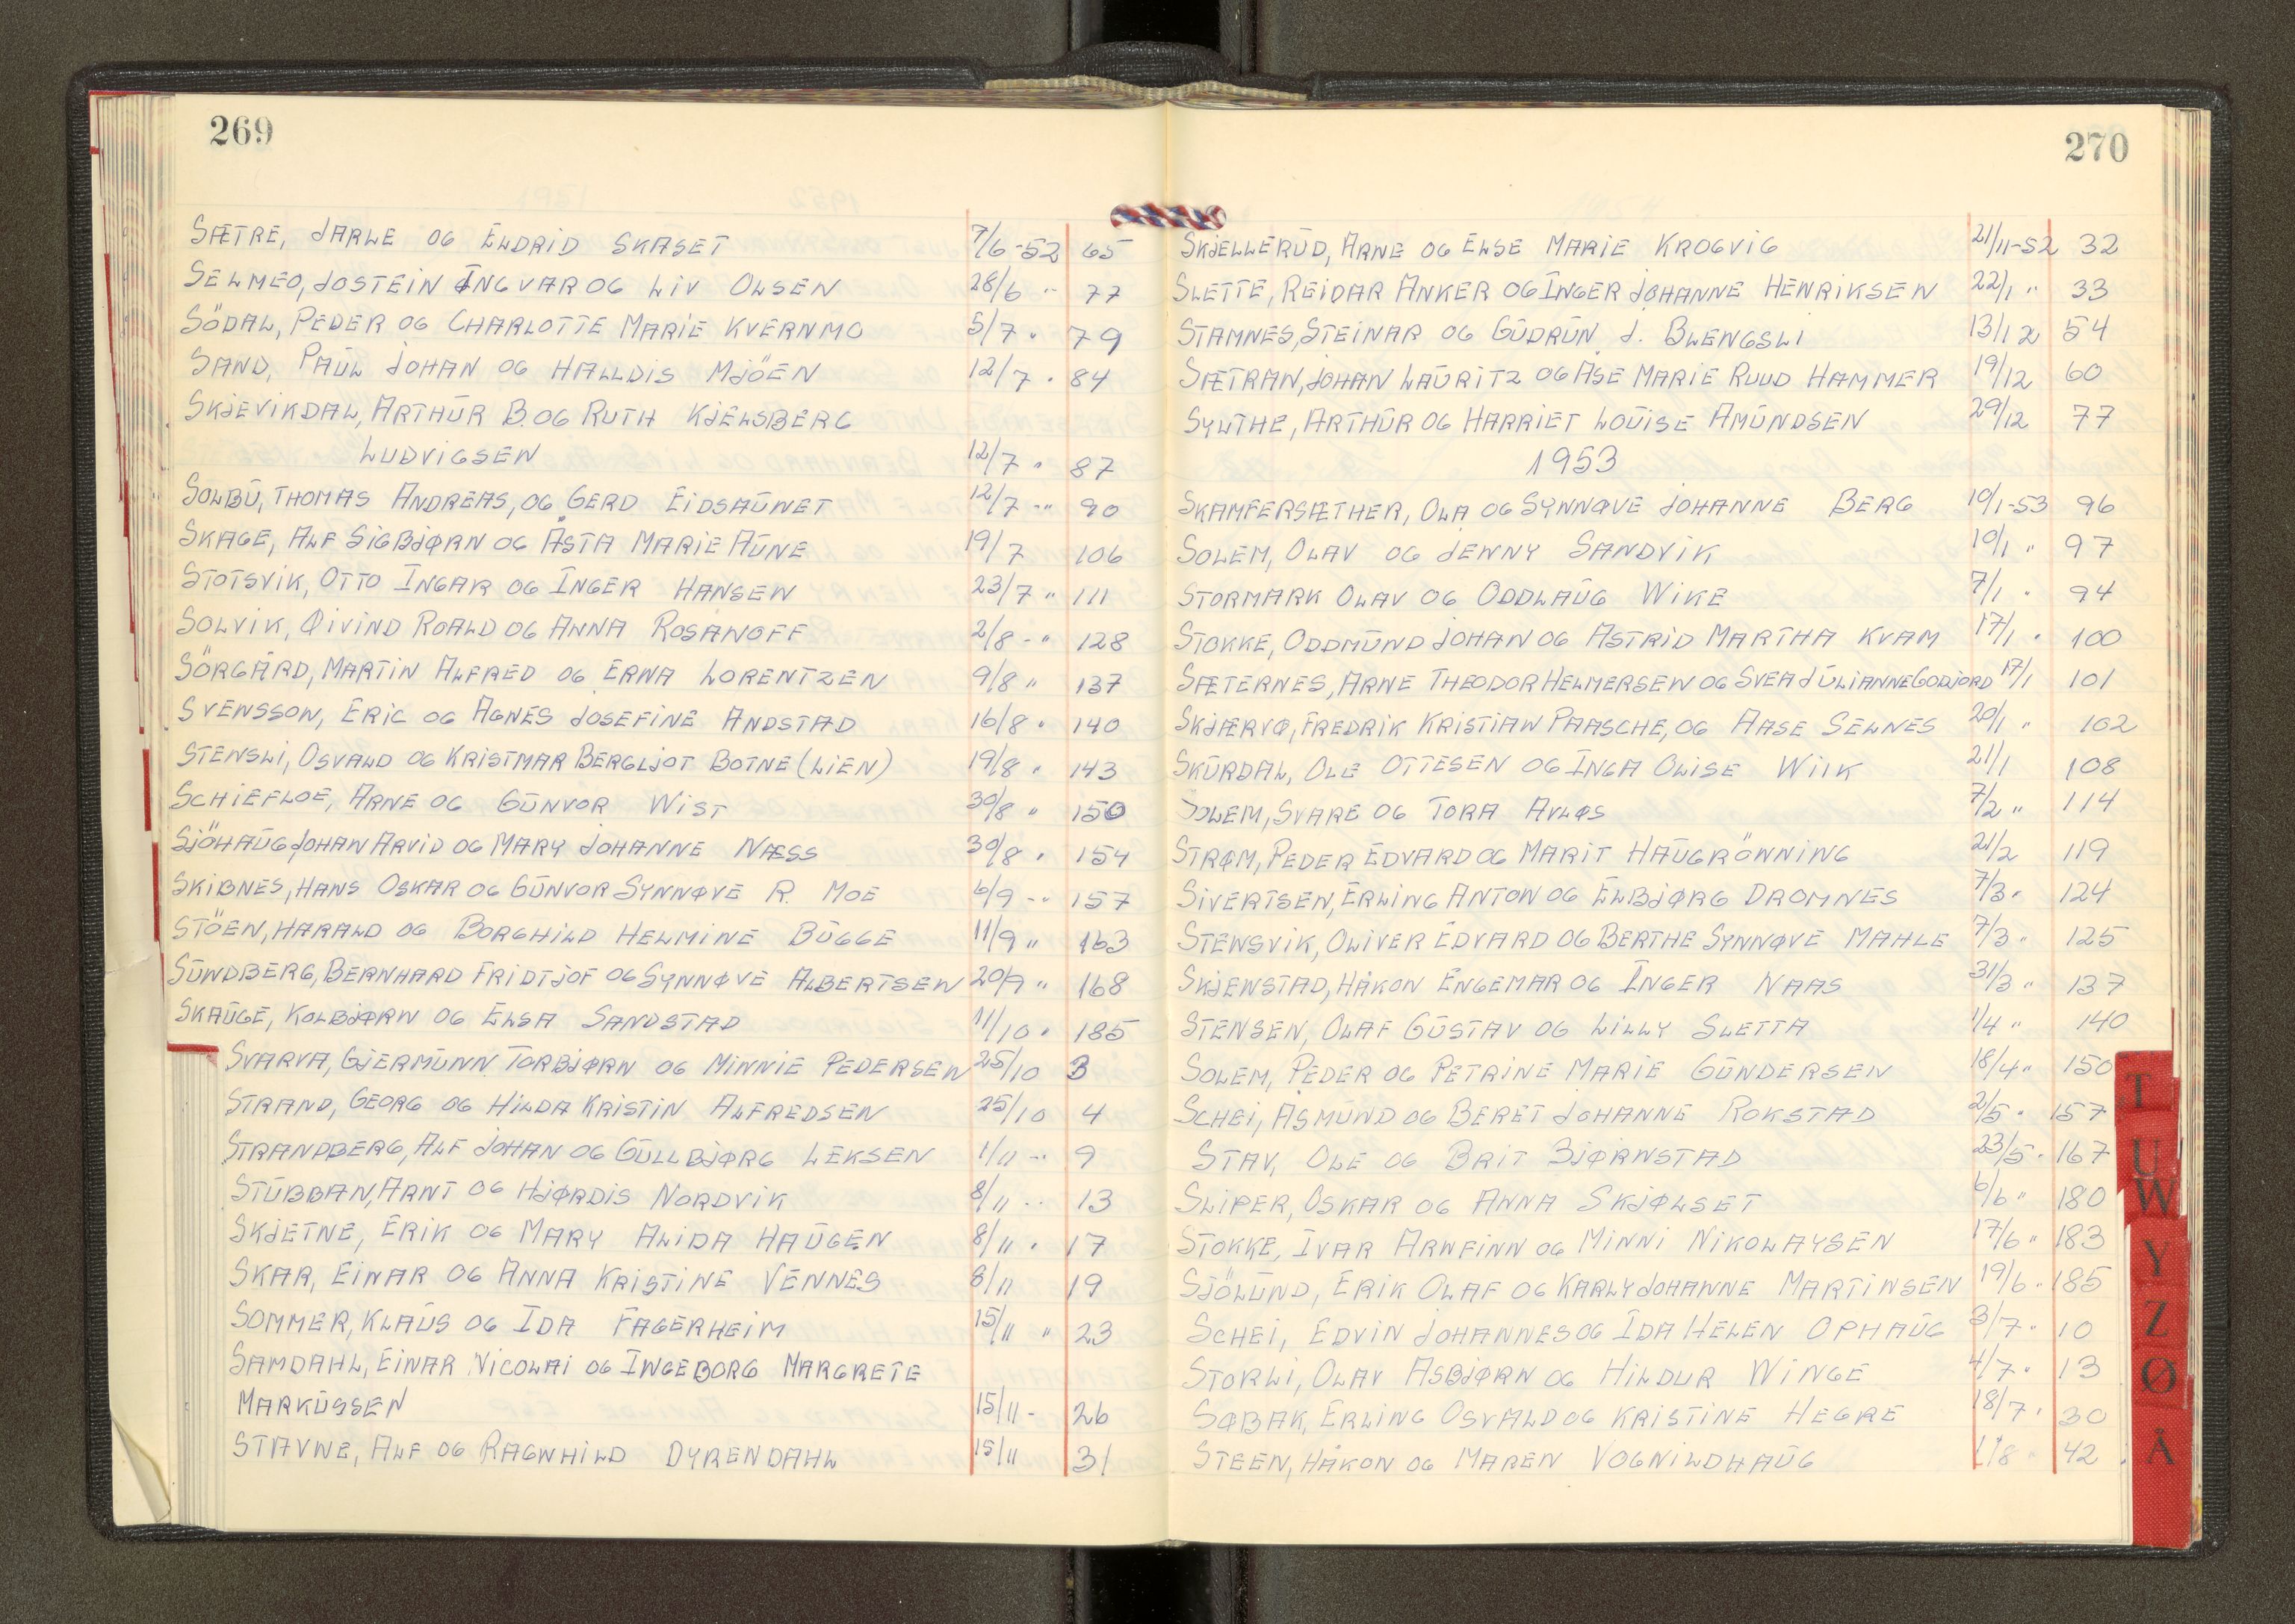 269
SÆTRE, JARLE OG ELDRID SKASET 7/6-52 65
SELMEO, JOSTEIN INGVAR OG LIV OLSEN 28/6 " 77
SÖDAL, PEDER OG CHARLOTTE MARIE KVERNMO 5/7 " 79
SAND, PAUL JOHAN OG HALLDIS MJÖEN 12/7 " 84
SKJEVIKDAL, ARTHUR B. OG RUTH KJELSBERG
LUDVIGSEN 12/7 " 87
SOLBU, THOMAS ANDREAS, OG GERD EIDSAUNET 12/7 -" 90
SKAGE, ALF SIGBJØRN OG ÅSTA MARIE AUNE 19/7 106
STOTSVIK, OTTO INGAR OG INGER HANSEN 23/7 " 111
SOLVIK, ØIVIND ROALD OG ANNA ROSANOFF 2/8 -" 128
SÖRGÅRD, MARTIN ALFRED OG ERNA LORENTZEN 9/8 " 137
SVENSSON, ERIC OG AGNES JOSEFINE ANDSTAD 16/8 " 140
STENSLI, OSVALD OG KRISTMAR BERGLJOT BOTNE (LIEN) 19/8 " 143
SCHIEFLOE, ARNE OG GUNVOR WIST 30/8 " 150
SJÖHAUG JOHAN ARVID OG MARY JOHANNE NÆSS 30/8 " 154
SKIBNES, HANS OSKAR OG GUNVOR SYNNØVE R. MOE 6/9 -" 157
STÖEN, HARALD OG BORGHILD HELMINE BUGGE 11/9 " 163
SUNDBERG, BERNHARD FRIDTJOF OG SYNNØVE ALBERTSEN 20/9 " 168
SKAUGE, KOLBJØRN OG ELSA SANDSTAD 11/10 " 185
SVARVA, GJERMUNN TORBJØRN OG MINNIE PEDERSEN 25/10 3
STRAND, GEORG OG HILDA KRISTIN ALFREDSEN 25/10 4
STRANDBERG, ALF JOHAN OG GULLBJØRG LEKSEN 1/11 -" 9
STUBBAN, ARNT OG HJØRDIS NORDVIK 8/11 -" 13
SKJETNE, ERIK OG MARY ALIDA HAUGEN 8/11 " 17
SKAR, EINAR OG ANNA KRISTINE VENNES 8/11 19
SOMMER, KLAUS OG IDA FAGERHEIM 15/11 " 23
SAMDAHL, EINAR NICOLAI OG INGEBORG MARGRETE
MARKUSSEN 15/11 - 26
STAVNE, ALF OG RAGNHILD DYRENDAHL 15/11 31
270
SKJELLERUD, ARNE OG ELSE MARIE KROGVIG 21/11-52 32
SLETTE, REIDAR ANKER OG INGER JOHANNE HENRIKSEN 22/1 " 33
STAMNES, STEINAR OG GUDRUN J. BLENGSLI 13/12 54
SÆTRAN, JOHAN LAURITZ OG ÅSE MARIE RUUD HAMMER 19/12 60
SYLTHE, ARTHUR OG HARRIET LOUISE AMUNDSEN 29/12 77
1953
SKAMFERSÆTHER, OLA OG SYNNØVE JOHANNE BERG 10/1-53 96
SOLEM, OLAV OG JENNY SANDVIK 10/1 " 97
STORMARK OLAV OG ODDLAUG WIKE 7/1 " 94
STOKKE, ODDMUND JOHAN OG ASTRID MARTHA KVAM 17/1 " 100
SÆTERNES, ARNE THEODOR HELMERSEN OG SVEA JULIANNE GODJORD 17/1 101
SKJÆRVØ, FREDRIK KRISTIAN PAASCHE, OG AASE SELNES 20/1 " 102
SKURDAL, OLE OTTESEN OG INGA OLISE WIIK 21/1 108
SOLEM, SVARE OG TORA AVLØS 7/2 " 114
STRØM, PEDER EDVARD OG MARIT HAUGRÖNNING 21/2 119
SIVERTSEN, ERLING ANTON OG ELBJØRG DROMNES 7/3 " 124
STENSVIK, OLIVER EDVARD OG BERTHE SYNNØVE MAHLE 7/3 " 125
SKJENSTAD, HÅKON ENGEMAR OG INGER NAAS 31/3 " 137
STENSEN, OLAF GUSTAV OG LILLY SLETTA 1/4 " 140
SOLEM, PEDER OG PETRINE MARIE GUNDERSEN 18/4 " 150
SCHEI, ÅSMUND OG BERET JOHANNE ROKSTAD 2/5 " 157
STAV, OLE OG BRIT BJØRNSTAD 23/5 " 167
SLIPER, OSKAR OG ANNA SKJØLSET 6/6 " 180
STOKKE, IVAR ARNFINN OG MINNI NIKOLAYSEN 17/6 " 183
SJÖLUND, ERIK OLAF OG KARLY JOHANNE MARTINSEN 19/6 " 185
SCHEI, EDVIN JOHANNES OG IDA HELEN OPHAUG 3/7 " 10
STORLI, OLAV ASBJØRN OG HILDUR WINGE 4/7 " 13
SØBAK, ERLING OSVALD OG KRISTINE HEGRE 18/7 " 30
STEEN, HÅKON OG MAREN VOGNILDHAUG 1/8 " 42
T
U
W
Y
Z
Ø
Å